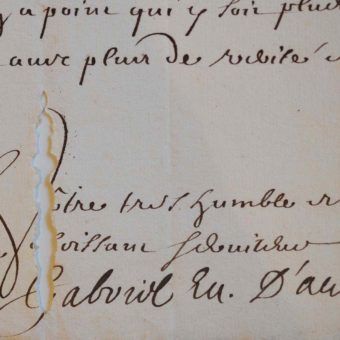 y a point qui y soit plus
avec plus de
Vôtre tres humble et
obeissant serviteur
Gabriel Ev. D'au